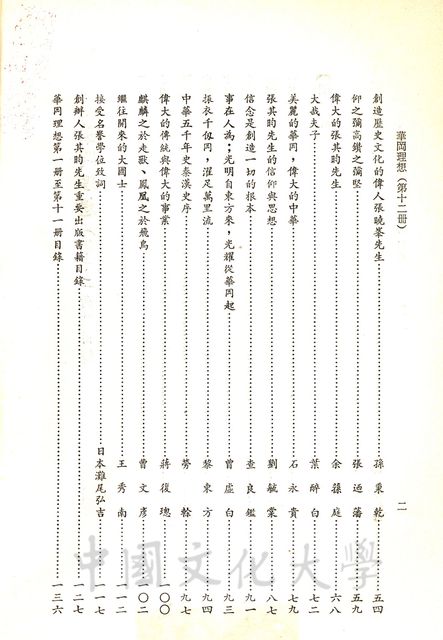 華岡理想（第十二册）
二
創造歷史文化的偉人張曉峯先生……孫秉乾 五四
仰之彌高鑽之彌堅……張迺藩 五九
偉大的張其昀先生……余葆庭 六八
大哉夫子……葉醉白 七二
美麗的華岡，偉大的中華……石永貴 七九
張其昀先生的信仰與思想……劉毓棠 八七
信念是創造一切的根本……查良鑑 九一
事在人為；光明自東方來，光耀從華岡起……曾虛白 九三
振衣千仭岡，濯足萬里流……黎東方 九四
中華五千年史秦漢史序……勞榦 九七
偉大的傳統與偉大的事業……蔣復璁 一〇〇
麒麟之於走獸、鳳凰之於飛鳥……曾文彥 一〇二
繼往開來的大國士……王秀南 一一二
接受名譽學位致詞……日本灘尾弘吉 一一七
創辦人張其昀先生重要出版書籍目錄……一二七
華岡理想第一册至第十一册目錄……一三六
中國文化大學